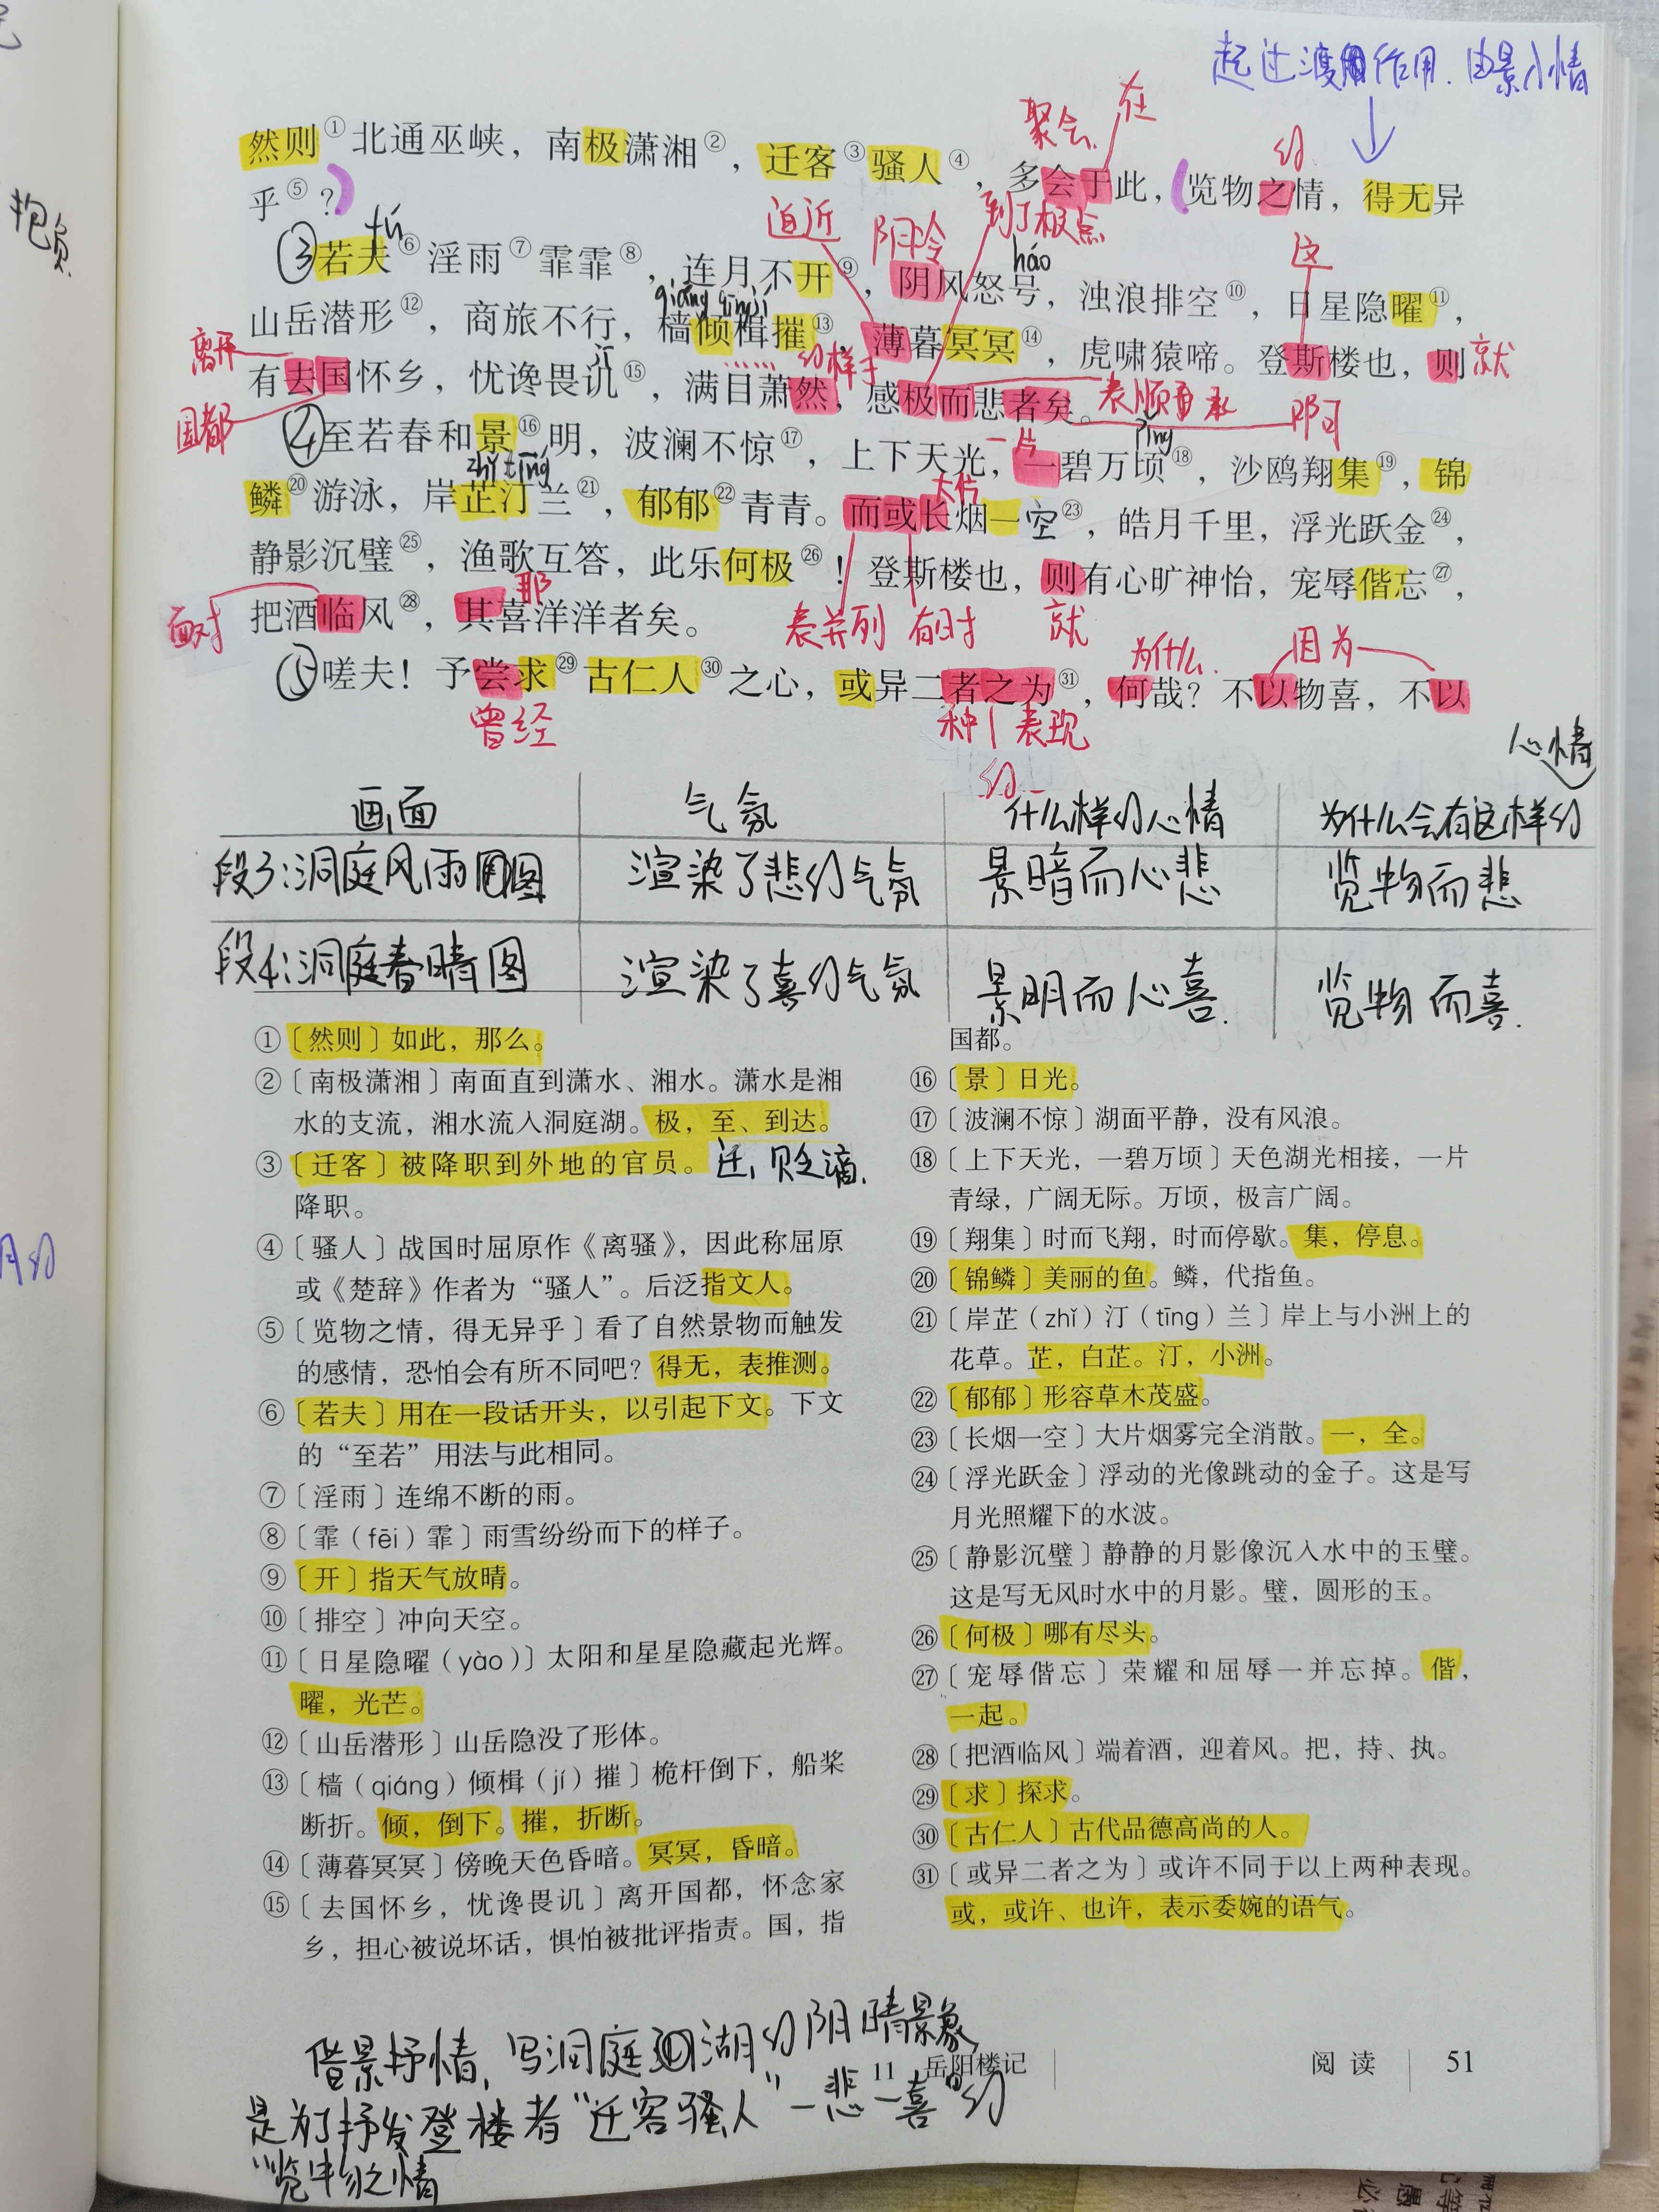 起过渡作用.由景入情
聚会 在
然则①北通巫峡，南极潇湘②，迁客③骚人④，多会于此，览物之情，得无异
的
乎⑤？
抱负
fú 迫近 阴冷 到了极点 háo 这
③若夫⑥淫雨⑦霏霏⑧，连月不开⑨，阴风怒号，浊浪排空⑩，日星隐曜⑪，
qiáng qīng jí
山岳潜形⑫，商旅不行，樯倾楫摧⑬，薄暮冥冥⑭，虎啸猿啼。登斯楼也，则
就
离开
jī 的样子
有去国怀乡，忧谗畏讥⑮，满目萧然，感极而悲者矣。
表顺承
国都
一片 qǐng
④至若春和景⑯明，波澜不惊⑰，上下天光，一碧万顷⑱，沙鸥翔集⑲，锦
zhǐ tīng 大片
鳞⑳游泳，岸芷汀兰㉑，郁郁㉒青青。而或长烟一空㉓，皓月千里，浮光跃金㉔，
静影沉璧㉕，渔歌互答，此乐何极㉖！登斯楼也，则有心旷神怡，宠辱偕忘㉗，
面对 那
把酒临风㉘，其喜洋洋者矣。
表并列 有时 就
为什么 因为
⑤嗟夫！予尝求㉙古仁人㉚之心，或异二者之为㉛，何哉？不以物喜，不以
曾经 种 表现
的
心情
画面 气氛 什么样的心情 为什么会有这样的
段3:洞庭风雨图 渲染了悲的气氛 景暗而心悲 览物而悲
段4:洞庭春晴图 渲染了喜的气氛 景明而心喜. 览物而喜.
①〔然则〕如此，那么。
②〔南极潇湘〕南面直到潇水、湘水。潇水是湘
水的支流，湘水流入洞庭湖。极，至、到达。
③〔迁客〕被降职到外地的官员。迁，贬谪，
降职。
④〔骚人〕战国时屈原作《离骚》，因此称屈原
或《楚辞》作者为“骚人”。后泛指文人。
⑤〔览物之情，得无异乎〕看了自然景物而触发
的感情，恐怕会有所不同吧？得无，表推测。
⑥〔若夫〕用在一段话开头，以引起下文。下文
的“至若”用法与此相同。
⑦〔淫雨〕连绵不断的雨。
⑧〔霏（fēi）霏〕雨雪纷纷而下的样子。
⑨〔开〕指天气放晴。
⑩〔排空〕冲向天空。
⑪〔日星隐曜（yào）〕太阳和星星隐藏起光辉。
曜，光芒。
⑫〔山岳潜形〕山岳隐没了形体。
⑬〔樯（qiáng）倾楫（jí）摧〕桅杆倒下，船桨
断折。倾，倒下。摧，折断。
⑭〔薄暮冥冥〕傍晚天色昏暗。冥冥，昏暗。
⑮〔去国怀乡，忧谗畏讥〕离开国都，怀念家
乡，担心被说坏话，惧怕被批评指责。国，指
国都。
⑯〔景〕日光。
⑰〔波澜不惊〕湖面平静，没有风浪。
⑱〔上下天光，一碧万顷〕天色湖光相接，一片
青绿，广阔无际。万顷，极言广阔。
⑲〔翔集〕时而飞翔，时而停歇。集，停息。
⑳〔锦鳞〕美丽的鱼。鳞，代指鱼。
㉑〔岸芷（zhǐ）汀（tīng）兰〕岸上与小洲上的
花草。芷，白芷。汀，小洲。
㉒〔郁郁〕形容草木茂盛。
㉓〔长烟一空〕大片烟雾完全消散。一，全。
㉔〔浮光跃金〕浮动的光像跳动的金子。这是写
月光照耀下的水波。
㉕〔静影沉璧〕静静的月影像沉入水中的玉璧。
这是写无风时水中的月影。璧，圆形的玉。
㉖〔何极〕哪有尽头。
㉗〔宠辱偕忘〕荣耀和屈辱一并忘掉。偕，
一起。
㉘〔把酒临风〕端着酒，迎着风。把，持、执。
㉙〔求〕探求。
㉚〔古仁人〕古代品德高尚的人。
㉛〔或异二者之为〕或许不同于以上两种表现。
或，或许、也许，表示委婉的语气。
借景抒情，写洞庭湖的阴晴景象
11 岳阳楼记 阅读 51
是为了抒发登楼者“迁客骚人”一悲一喜的
“览物之情